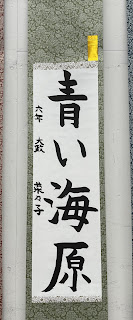 青い海原
六年 菜々子